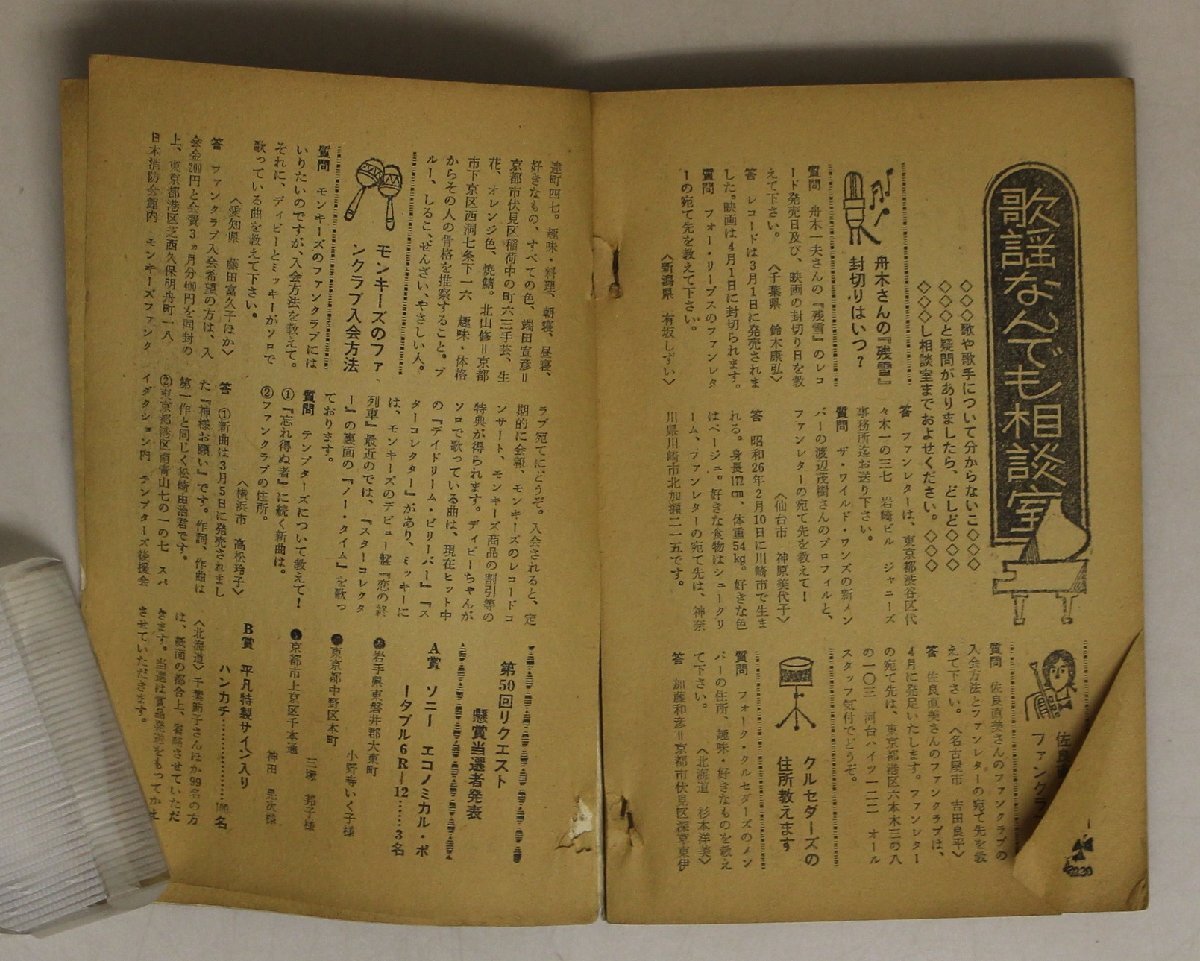 歌謡なんでも相談室
◇◇◇歌や歌手について分からないこ◇◇◇◇
◇◇◇と疑問がありましたら、どしど◇◇◇◇
◇◇◇し相談室までおよせください。◇◇◇◇
舟木さんの『残雪』
封切りはいつ?
質問 舟木一夫さんの『残雪』のレコ
ード発売日及び、映画の封切り日を教
えて下さい。 〈千葉県 鈴木康弘〉
答 レコードは3月1日に発売されま
した。映画は4月1日に封切られます。
質問 フォー・リーブスのファンレタ
ーの宛て先を教えて下さい。
〈新潟県 有坂しずい〉
答 ファンレターは、東京都渋谷区代
々木一の三七 岩崎ビル ジャニーズ
事務所迄お送り下さい。
質問 ザ・ワイルド・ワンズの新メン
バーの渡辺茂樹さんのプロフィルと、
ファンレターの宛て先を教えて!
〈仙台市 神原美代子〉
答 昭和26年2月10日に川崎市で生ま
れる。身長 cm、体重54kg。好きな色
はベージュ。好きな食物はシュークリ
ーム、ファンレターの宛て先は、神奈
川県川崎市北加瀬二一五です。
佐良
ファンクラ
質問 佐良直美さんのファンクラブの
入会方法とファンレターの宛て先を教
えて下さい。〈名古屋市 吉田良平〉
答 佐良直美さんのファンクラブは、
4月に発足いたします。ファンレター
の宛て先は、東京都港区六本木三の八
の一〇三 河台ハイツ一二二 オール
スタッフ気付でどうぞ。
クルセダーズの
住所教えます
質問 フォーク・クルセダーズのメン
バーの住所、趣味・好きなものを教え
て下さい。 〈北海道 杉本洋美〉
答 加藤和彦=京都市伏見区深草東伊
達町四七。趣味・料理、朝寝、昼寝、
好きなもの、すべての色。端田宣彦=
京都市伏見区稲荷中の町六三手芸、生
花、オレンジ色、焼鯖。北山修=京都
市下京区西洞七条下一六 趣味・体格
からその人の骨格を推察すること。ブ
ルー、しるこ、ぜんざい、やさしい人。
モンキーズのファ
ンクラブ入会方法
質問 モンキーズのファンクラブには
いりたいのですが、入会方法を教えて。
それに、ディビーとミッキーがソロで
歌っている曲を教えて下さい。
〈愛知県 藤田富久子ほか〉
答 ファンクラブ入会希望の方は、入
会金200円と会費3ヵ月分400円を同封の
上、東京都港区芝西久保明舟町一八
日本消防会館内 モンキーズファンク
ラブ宛てにどうぞ。入会されると、定
期的に会報、モンキーズのレコードコ
ンサート、モンキーズ商品の割引等の
特典が得られます。ディビーちゃんが
ソロで歌っている曲は、現在ヒット中
の『デイドリーム・ビリーバー』『ス
ターコレクター』があり、ミッキーに
は、モンキーズのデビュー盤『恋の終
列車』最近のでは、『スターコレクタ
ー』の裏面の『ノー・タイム』を歌っ
ております。
質問 テンプターズについて教えて!
①『忘れ得ぬ君』に続く新曲は。
②ファンクラブの住所。
〈横浜市 高松玲子〉
答 ①新曲は3月5日に発売されまし
た『神様お願い』です。作詞、作曲は
第一作と同じく松崎由治君です。
②東京都港区南青山七の一の七 スパ
イダクション内 テンプターズ後援会
第50回リクエスト
懸賞当選者発表
A賞 ソニー エコノミカル・ポ
ータブル6R-12……3名
●岩手県東磐井郡大東町
小野寺いく子様
●東京都中野区本町
三 邦子様
●京都市上京区千本通
神田 様
B賞 平凡特製サイン入り
ハンカチ……100名
〈北海道〉千葉 子さんほか99名の方
は、誌面の都合上、省略させていただ
きます。当選は賞品発送をもってかえ
させていただきます。